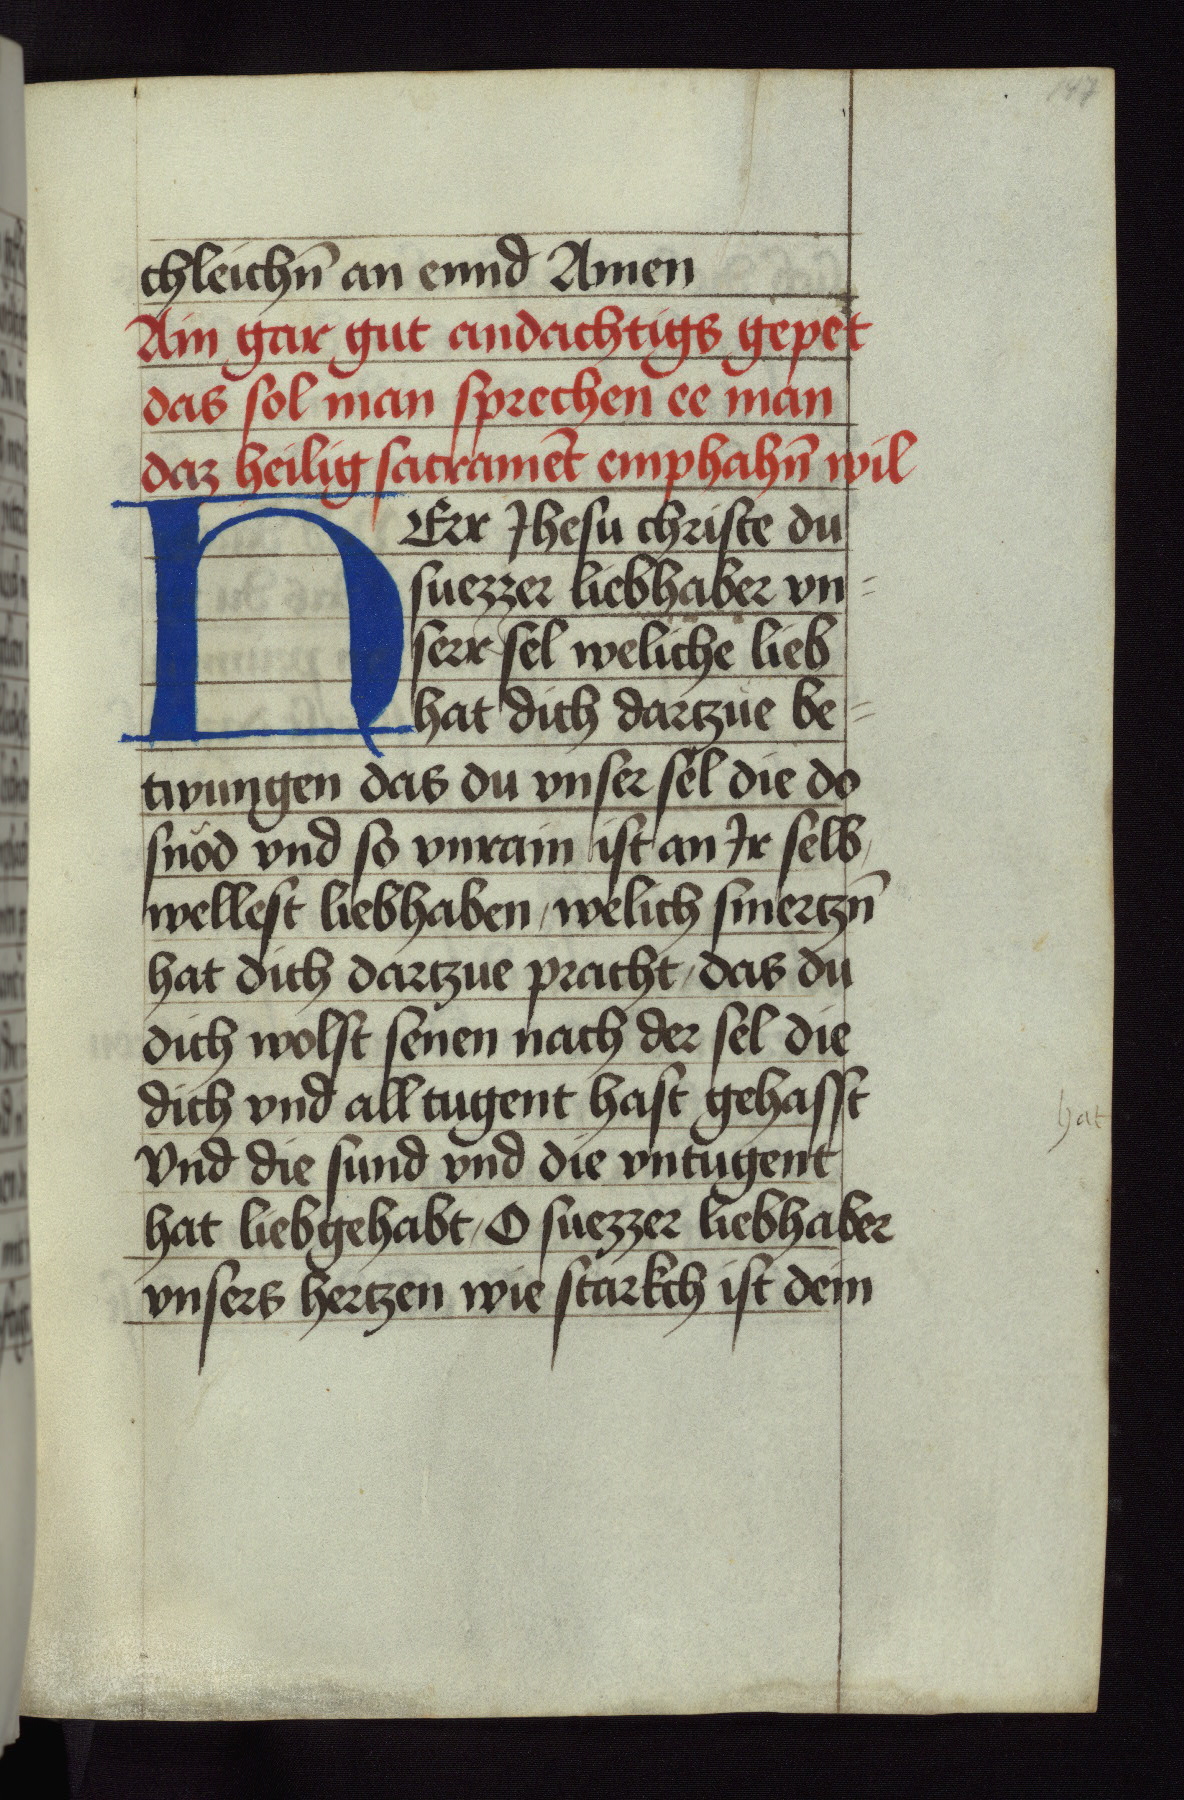 147
chleichn̄ an ennd Amen
Ain gar gut andachtigs gepet
das sol man sprechen ee man
daz heilig sacramēt emphahn̄ wil
HErr Jhesu christe du
suezzer liebhaber vn=
serr sel weliche lieb
hat dich dartzue be=
twungen das du vnser sel die do
snöd vnd so vnrain ist an Jr selb /
wellest liebhaben / welich smertzn̄
hat dich dartzue pracht / das du
dich wolst senen nach der sel die
dich vnd all tugent hast gehasst
hat
Vnd die sund vnd die vntugent
hat liebgehabt / O suezzer liebhaber
vnsers hertzen wie starkch ist dein